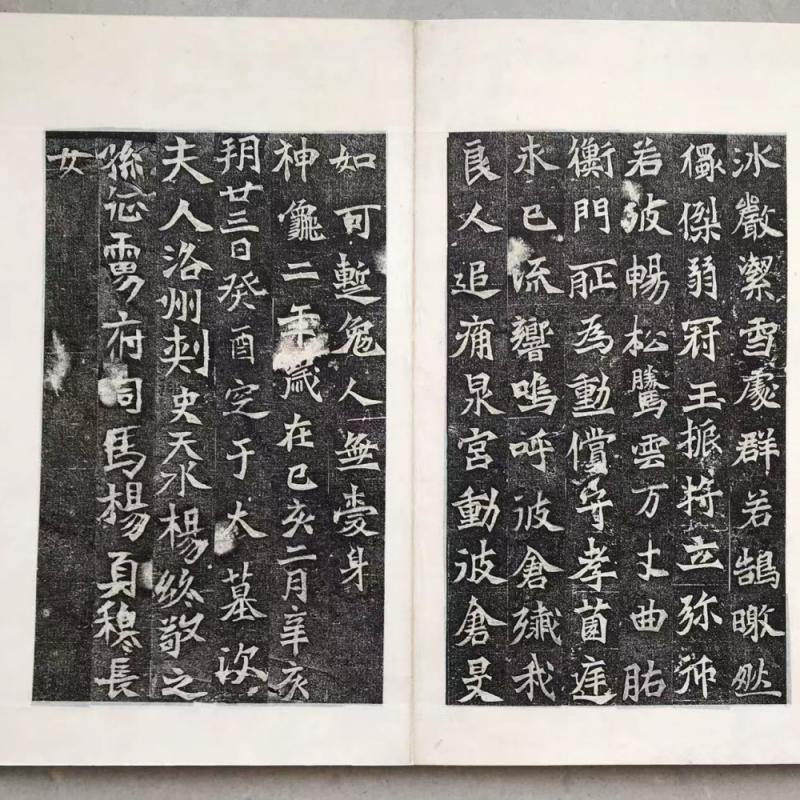 氷嚴潔雪處群若鵠暾然
儁傑弱冠王振将立弥沖
若彼暢松騰雲万丈曲肱
衡門征為動儻守孝茵庭
未已流響嗚呼彼倉殲我
良人追痛泉宮動彼倉旻
如可蹔免人無憂身
神龜二年歲在己亥二月辛亥
朔廿三日癸酉窆于太墓次
夫人洛州刺史天水楊終敬之
孫征虜府司馬楊貞穆長
女